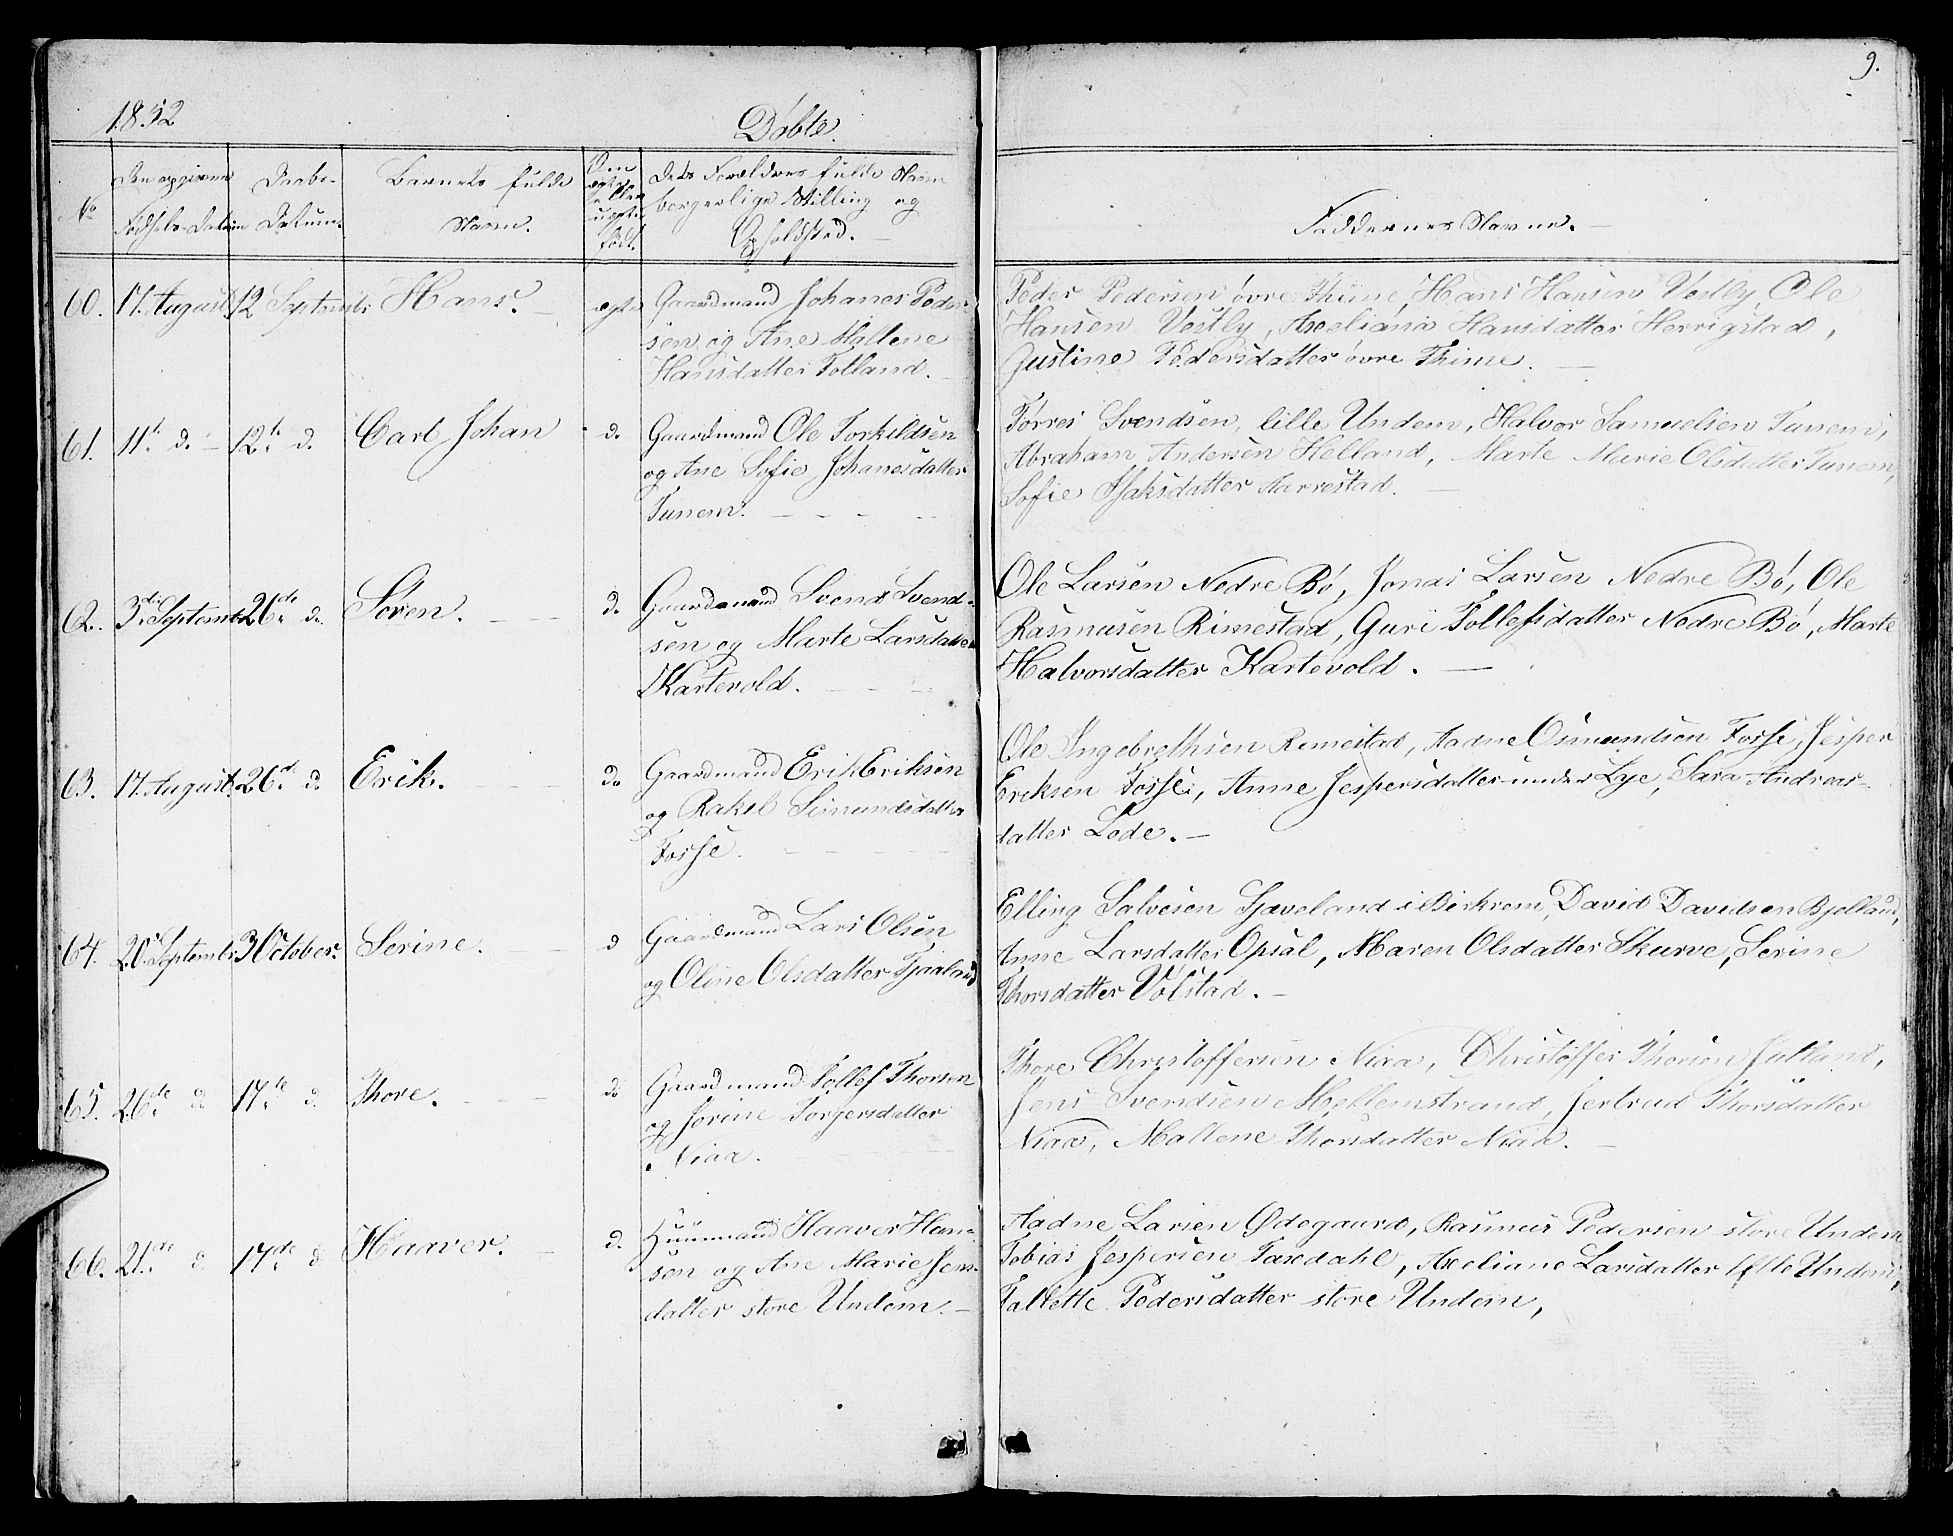 9.
1852
Døbte.
No
Den opgivne
Fødsels-Datum
Daabs-
Datum.
Barnets fulde
Navn.
Om
ægte
eller
uægte
født.
Dets Forældres fulde Navn
borgerlige Stilling og
Opholdsted. —
Faddernes Navne. —
60. 17. August 12 Septembr Hans. — ægte Gaardmand Johanes Peder-
sen og Ane Mallene
Hansdatter Tolland. —
Peder Pedersen övre Thime, Hans Hansen Vestly, Ole
Hansen Vestly, Axeliana Hansdatter Herrigstad,
Gustine Pedersdatter övre Thime. —
61. 11te d. — 12te d. Carl Johan d. Gaardmand Ole Torkildsen
og Ane Sofie Johanesdatter
Tunem. — — — —
Tørres Svendsen, lille Undem, Halvor Samuelsen Tunem,
Abraham Andersen Helland, Marte Marie Olsdatter Tunem,
Sofie Isaksdatter Aarrestad. —
62. 3die Septembr 26de d. Sören. — — d. Gaardmand Svend Svend-
sen og Marte Larsdatter
Kartevold. — — —
Ole Larsen Nedre Bö, Jonas Larsen Nedre Bö, Ole
Rasmusen Rimestad, Guri Tollefsdatter Nedre Bö, Marte
Halvorsdatter Kartevold. —
63. 17. August. 26d d. Erik. — — do Gaardmand Erik Eriksen
og Rakel Simundsdatter
Fosse. — — — —
Ole Ingebrethsen Rimestad, Aadne Osmundsen Fosse, Jesper
Eriksen Fosse, Anne Jespersdatter under Lye, Sara Andreas-
datter Lode. —
64. 20. Septembr 3 October. Serine. — d Gaardmand Lars Olsen
og Oline Olsdatter Tjaaland
Elling Salvesen Gjæveland i Birkrem, David Davidsen Bjelland,
Anne Larsdatter Opsal, Maren Olsdatter Skurve, Serine
Thorsdatter Völstad. —
65. 26de d. 17de d. Thore. — — do Gaardmand Tollef Thorsen
og Jorine Torgersdatter
Niaa. — — —
Thore Christoffersen Niaa, Christoffer Thorsen Julland,
Jens Svendsen Mellemstrand, Jertrud Thorsdatter
Niaa, Mallene Thorsdatter Niaa. —
66. 21de d 17de d Haaver. — d. Huusmand Haaver Han-
sen og Ane Marie Jens-
datter store Undem. —
Aadne Larsen Ødegaard, Rasmus Pedersen store Undem
Tobias Jespersen Taxedahl, Axeliane Larsdatter lille Undem,
Tallette Pedersdatter store Undem,